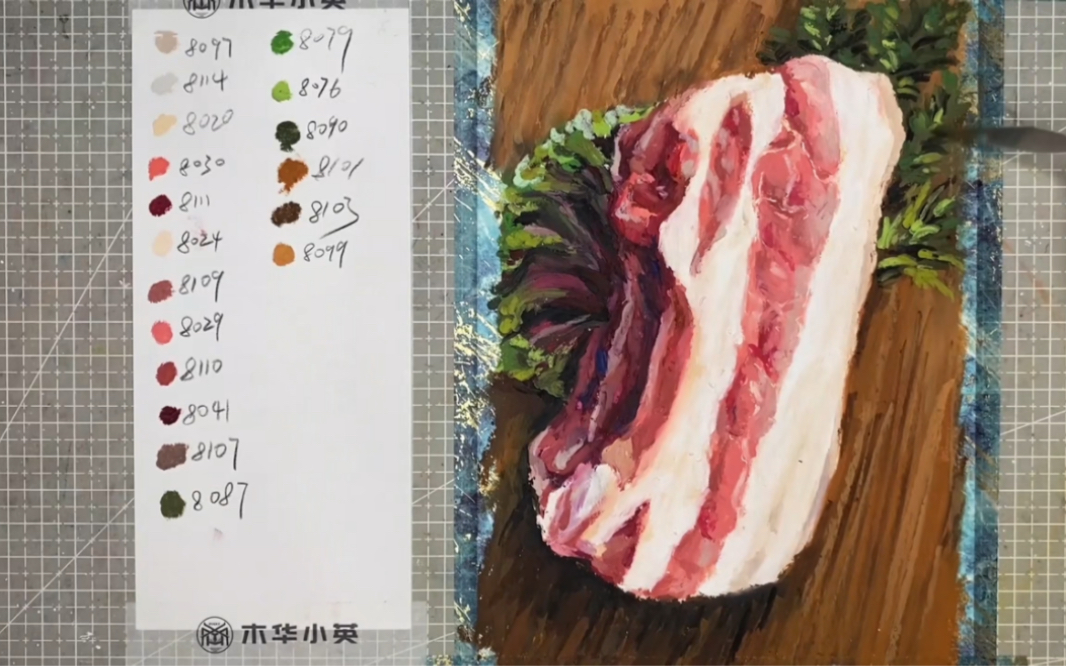 木华小英
8097
8114
8020
8030
8111
8024
8109
8029
8110
8041
8107
8087
8079
8076
8090
8101
8103
8099
木华小英